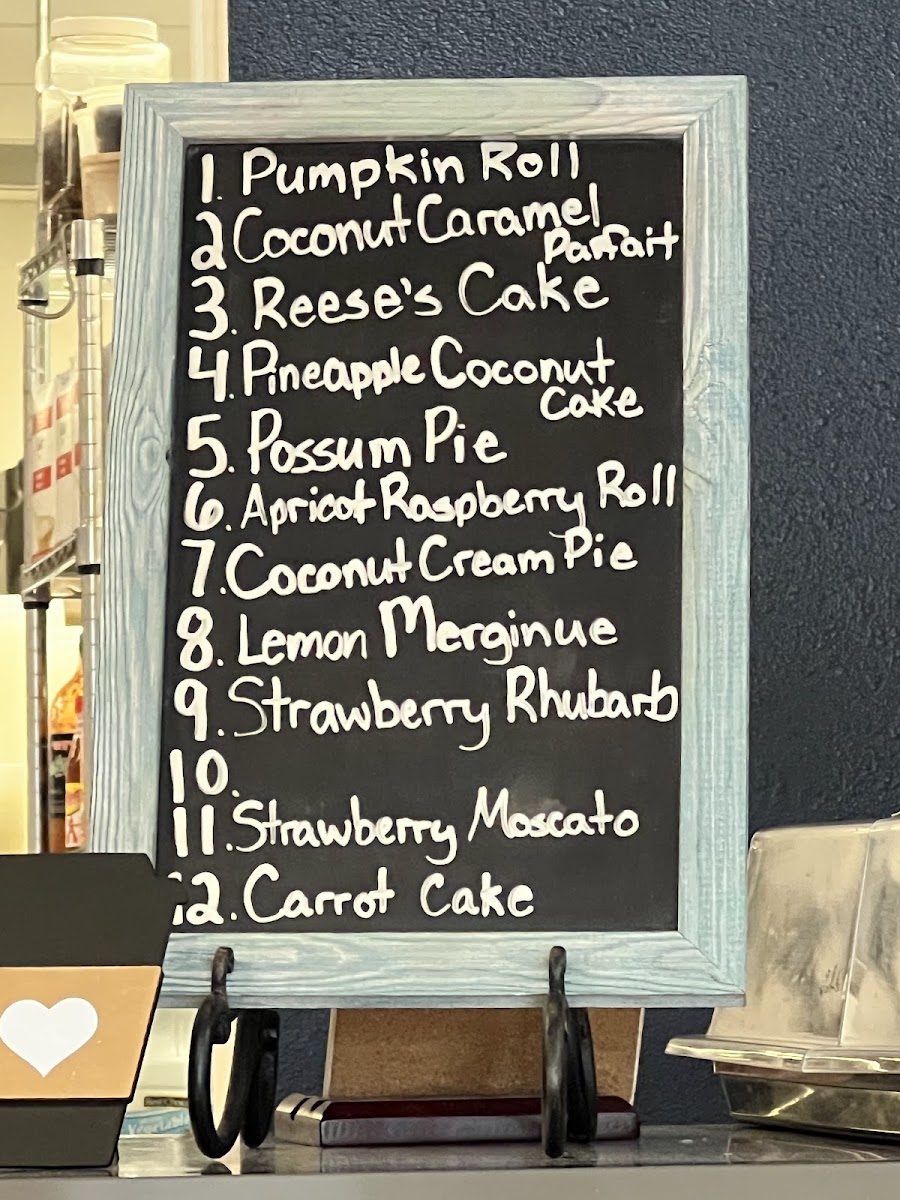 1. Pumpkin Roll
2 Coconut Caramel
Parfait
3. Reese's Cake
4. Pineapple Coconut
Cake
5. Possum Pie
6. Apricot Raspberry Roll
7. Coconut Cream Pie
8. Lemon Merginue
9. Strawberry Rhubarb
10.
11. Strawberry Moscato
12. Carrot Cake
Vegetable